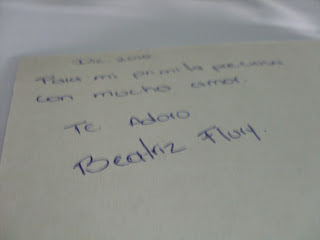 Dic. 2010
Para mi primita preciosa
con mucho amor.
Te Adoro
Beatriz Flury.